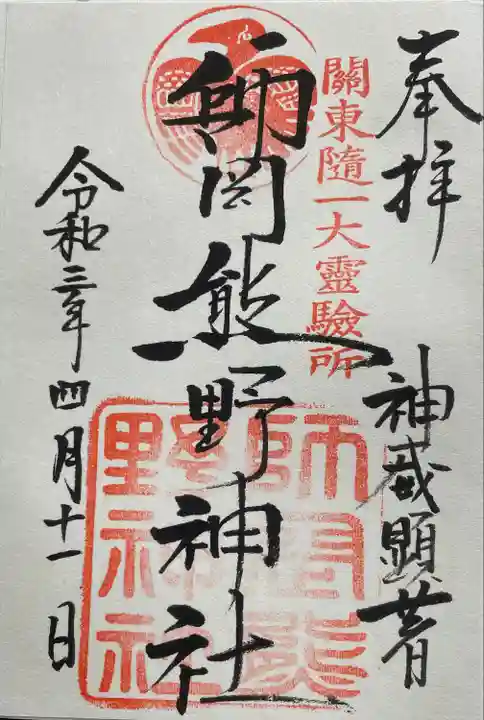 奉拝
神威顕著
關東随一大靈驗所
師岡熊野神社
師岡熊
野神社
令和三年四月十一日